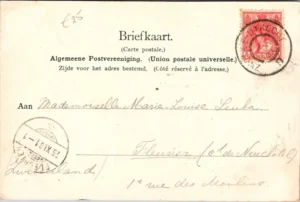 £50
Briefkaart.
(Carte postale.)
Algemeene Postvereeniging. (Union postale universelle.)
Zijde voor het adres bestemd. (Côté réservé à l'adresse.)
Aan Mademoiselle Marie-Louise
Fleurier (ct de Neuchâtel)
Zwitserland
1e rue des Moulins